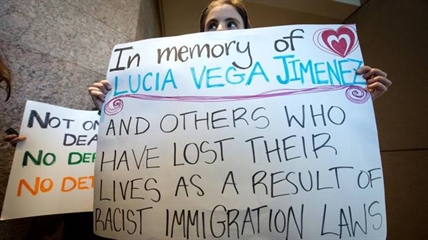 In memory of
LUCIA VEGA JIMENEZ
AND OTHERS WHO
HAVE LOST THEIR
LIVES AS A RESULT OF
RACIST IMMIGRATION LAWS
NOT
NO
NO